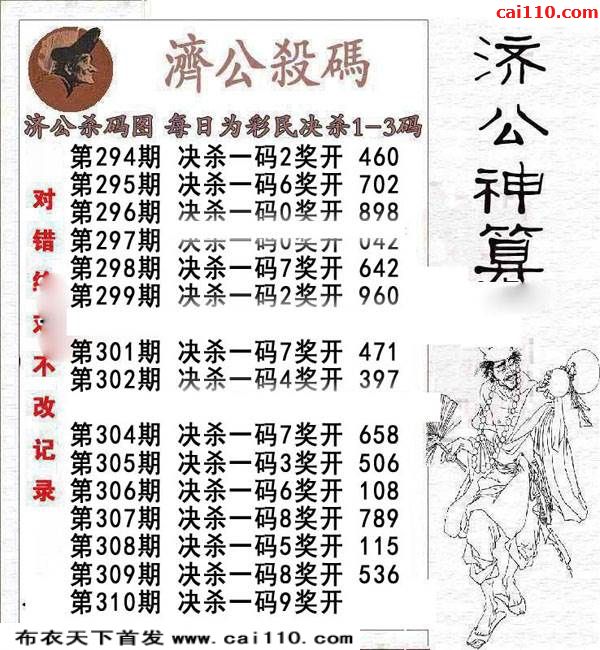 cai110.com
濟公殺碼
济公杀码图 每日为彩民决杀1-3码
第294期 决杀一码2奖开 460
第295期 决杀一码6奖开 702
第296期 决杀一码0奖开 898
第297期 决杀一码0奖开 042
第298期 决杀一码7奖开 642
第299期 决杀一码2奖开 960
第301期 决杀一码7奖开 471
第302期 决杀一码4奖开 397
第304期 决杀一码7奖开 658
第305期 决杀一码3奖开 506
第306期 决杀一码6奖开 108
第307期 决杀一码8奖开 789
第308期 决杀一码5奖开 115
第309期 决杀一码8奖开 536
第310期 决杀一码9奖开
对错不改记录
济公神算
布衣天下首发 www.cai110.com